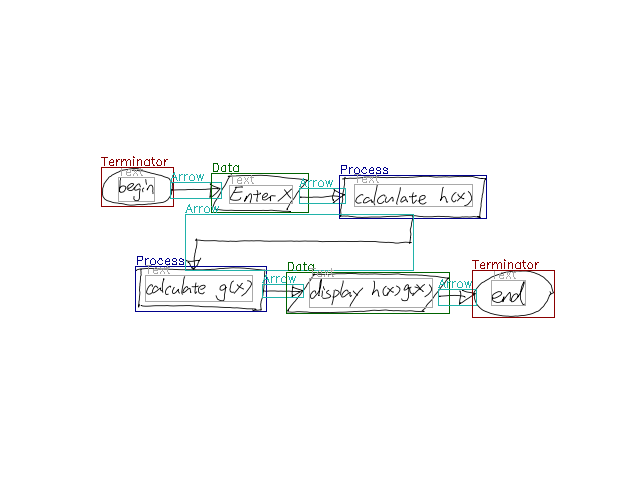 Terminator
Text
begin
Arrow
Data
Text
Enter X
Arrow
Process
Text
calculate h(x)
Arrow
Process
Text
calculate g(x)
Arrow
Data
Text
display h(x)g(x)
Arrow
Terminator
Text
end